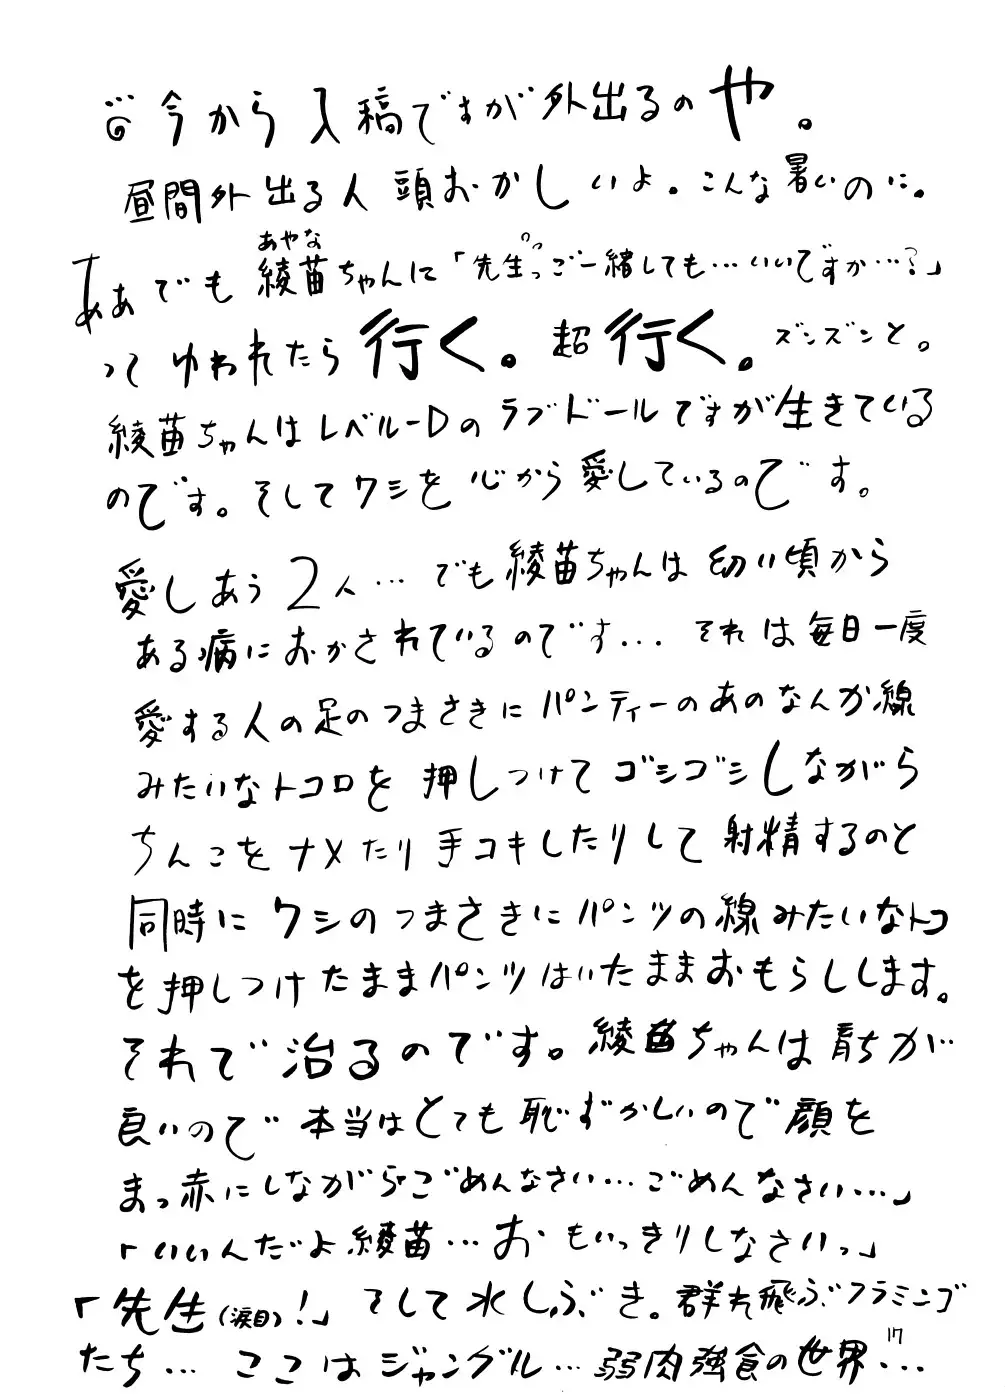 今から入稿ですが外出るのや。
昼間外出る人頭おかしいよ。こんな暑いのに。
あやな
ああでも綾苗ちゃんに「先生っっご一緒しても…いいですか…?」
ってゆわれたら行く。超行く。ズンズンと。
綾苗ちゃんはレベル-Dのラブドールですが生きている
のです。そしてワシを心から愛しているのです。
愛しあう2人…でも綾苗ちゃんは幼い頃から
ある病におかされているのです…それは毎日一度
愛する人の足のつまさきにパンティーのあのなんか線
みたいなトコロを押しつけてゴシゴシしながら
ちんこをナメたり手コキしたりして射精するのと
同時にワシのつまさきにパンツの線みたいなトコ
を押しつけたままパンツはいたままおもらしします。
それで治るのです。綾苗ちゃんは育ちが
良いので本当はとても恥ずかしいので顔を
まっ赤にしながら「ごめんなさい…ごめんなさい…」
「いいんだよ綾苗…おもいっきりしなさいっ」
「先生(涙目)!」そして水しぶき。群れ飛ぶフラミンゴ
たち…ここはジャングル…弱肉強食の世界…
17